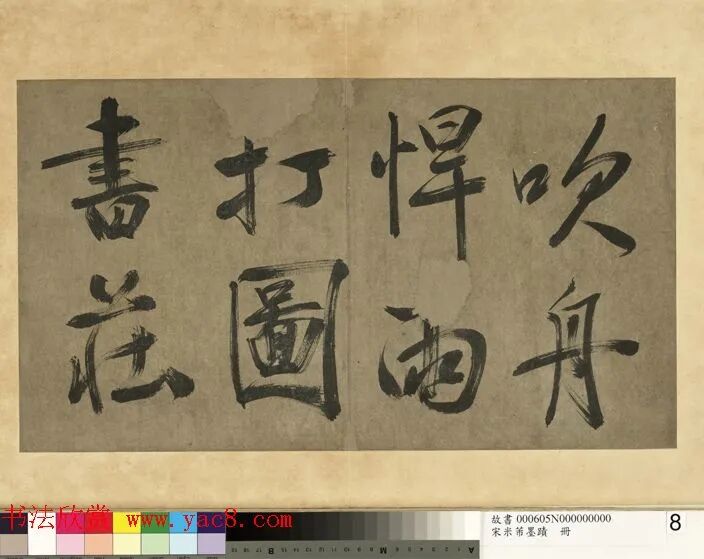 吹舟
悍雨
打圖
書莊
书法欣赏 www.yac8.com
故書 000605N000000000
宋米芾墨蹟 冊
8